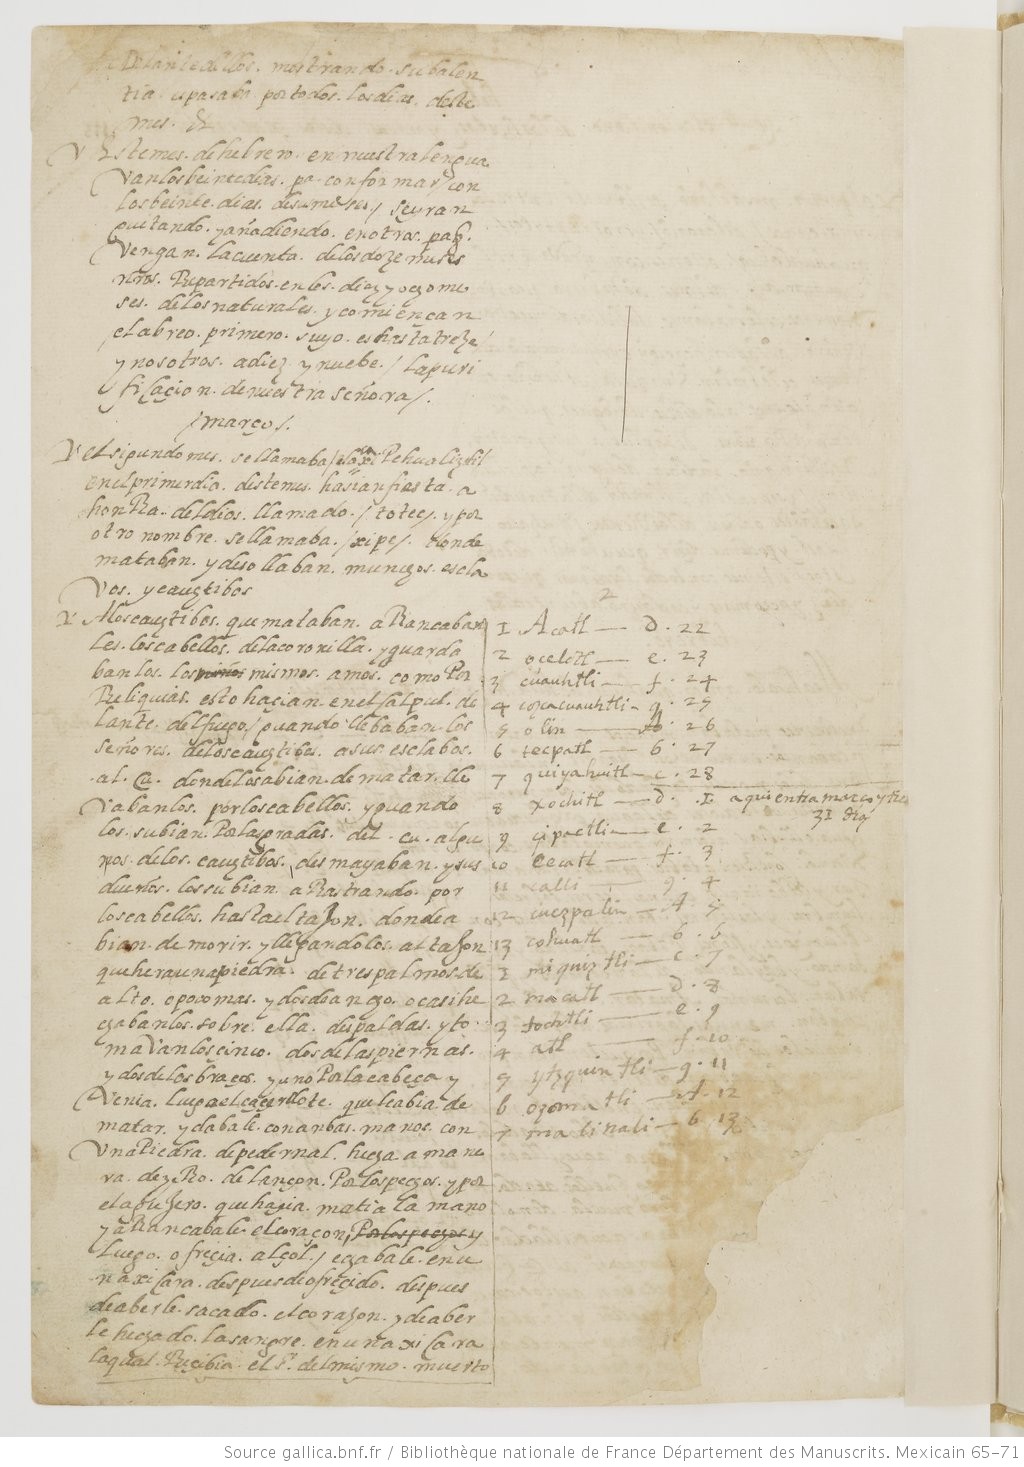 Delante dellos. mostrando. su balen
tia. y pasaba por todos. los dias. deste
mes. &
Este mes. de hebrero. en nuestra lengua
van los beinte dias. pa conformar con
los beinte. dias. de su mes / se yran
quitando. y añadiendo. en otros. paq.
vengan. la cuenta. de los doze meses
nros. Repartidos. en los. diez y ocho me
ses. de los naturales. y comiençan
el abreo. primero. suyo. es hasta treze
y nosotros. a diez y nuebe. / la puri
ficaçion. de nuestra señora /.
/ março /.
el sigundo mes. se llamaba / tlaxi Pehualiztli
en el primer dia. deste mes. hasian fiesta. a
honRa. del dios. llamado. / totec /. y por
otro nombre. se llamaba. / xipe /. donde
mataban. y desollaban. munchos. escla
vos. y cauptibos
A los cauptibos. que mataban. aRancaban
les. los cabellos. de la coronilla. y guarda
banlos. los mismos. amos. como Por
Reliquias. esto hacian en el calpul. de
lante. del fuego / quando llebaban. los
señores. de los cauptibos. a sus esclabos.
al. Cu. donde los abian. de matar. lle
vabanlos. por los cabellos. y quando
los. subian. Por las gradas. del. cu. algu
nos. de los. cauptibos. desmayaban. y sus
dueños. los subian. aRastrando. por
los cabellos. hasta el taJon. donde a
bian. de morir. y llegandolos. al taJon
que hera una piedra. de tres palmos de
alto. o poco mas. y dos de ancho. o casi he
chabanlos. sobre. ella. de spaldas. y to
mavan los cinco. dos de las piernas.
y dos de los braços. y uno Por la cabeça y
venia. luego el que le abia de
matar. y dabale. con anbas. manos. con
una Piedra. de pedernal. hecha a mane
ra. de yeRo. de lançon. Por los pechos. y por
el aguJero. que haçia. metia la mano
y aRancabale. el coraçon, Por los pechos y
Luego. ofreçia. al çol. / echabale. en u
na xicara. despues de ofreçido. despues
de aberle. sacado. el coraJon. y de aber
le hechado. la sangre. en una xicara
la qual. Reçibia. el Sr. del mismo. muerto
2
1 Acatl — D. 22
2 ocelotl — e. 23
3 cuauhtli — f. 24
4 cozcacuauhtli — g. 25
5 olin — A. 26
6 tecpatl — b. 27
7 quiyahuitl — c. 28
8 xochitl — d. 1 aqui entra março y tiene
31 dias
9 çipactli — e. 2
10 eecatl — f. 3
11 calli — g. 4
12 cuezpalin — A. 5
13 cohuatl — b. 6
1 miquiztli — c. 7
2 macatl — D. 8
3 tochtli — e. 9
4 atl — f. 10
5 ytzquintli — g. 11
6 ozomatli — A. 12
7 malinali — b 13
Source gallica.bnf.fr / Bibliothèque nationale de France Département des Manuscrits. Mexicain 65-71